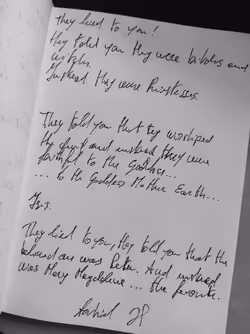 They lied to you!
They told you they were bitches and
Instead they were Priestesses.
They told you that they worshiped
the devil and instead they were
faithful to the Goddess...
... to the Goddess Mother Earth...
They lied to you, they told you that the
beloved one was Peter. And instead
was Mary Magdalene ... the favorite.